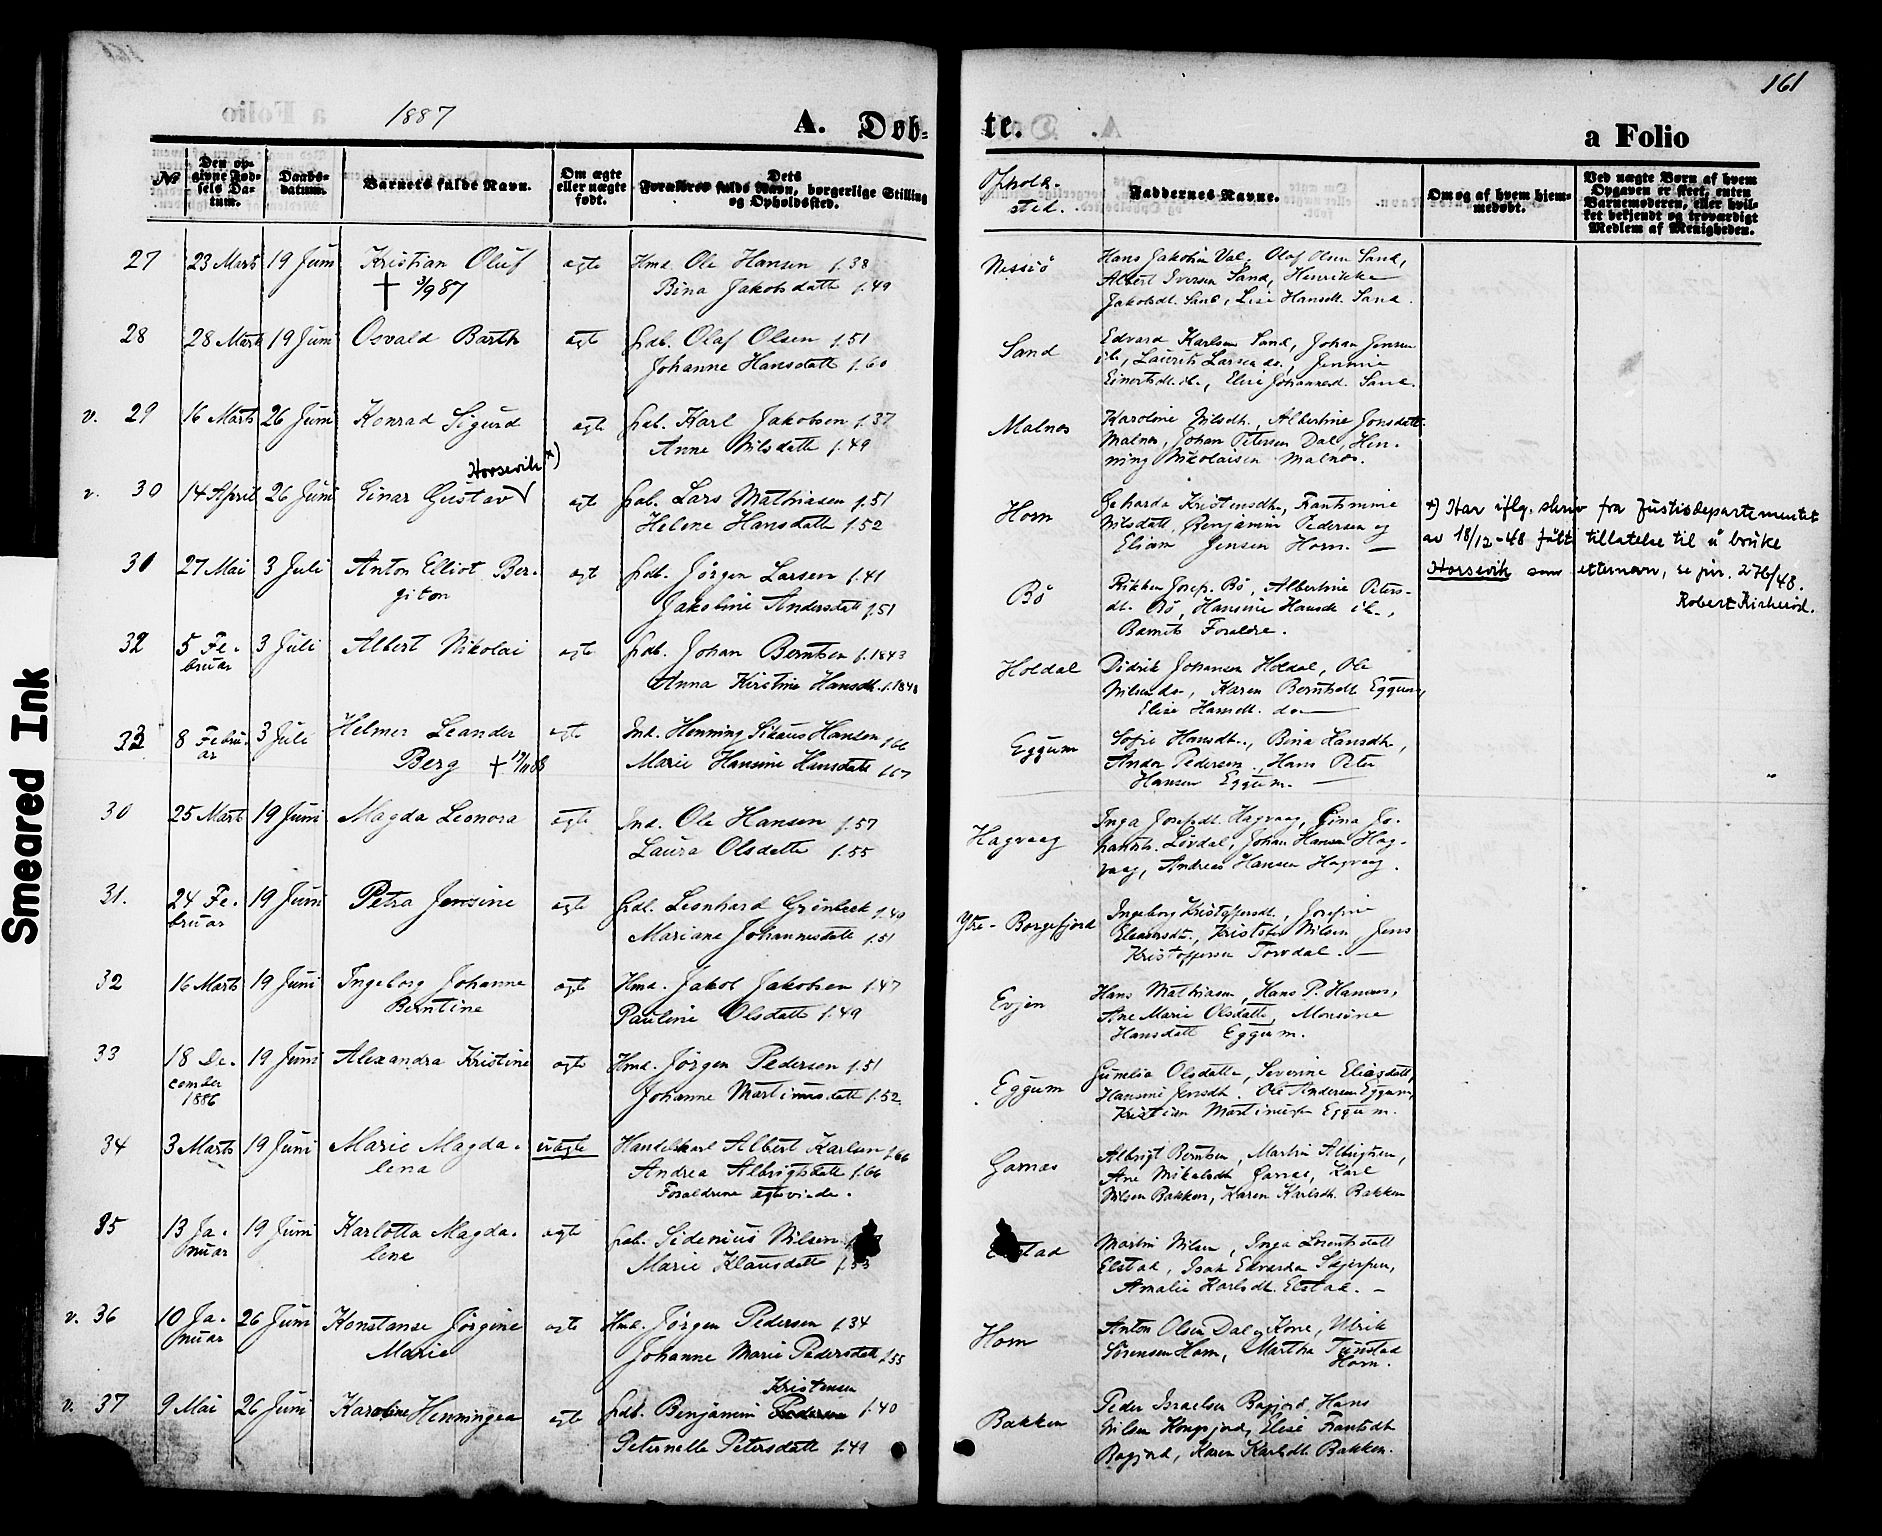 161
1887
A. Døb-
te.
a Folio
Smeared Ink
№
Den op-
givne Fød-
sels Da-
tum.
Daabs-
datum.
Barnets fulde Navn.
Om ægte
eller uægte
født.
Dets
Forældres fulde Navn, borgerlige Stilling
og Opholdssted.
Ophold-
sted.
Faddernes Navne.
Om og af hvem hjem-
medøbt.
Ved uægte Børn af hvem
Opgaven er skeet, enten
Barnemoderen, eller hvil-
ket bekjendt og troværdigt
Medlem af Menigheden.
27 23 Marts 19 Juni Kristian Oluf ægte Hmd. Ole Hansen f.38
† 3/9 87 Bina Jakobsdatte f.49
Hans Jakobsen Val, Olaf Olsen Sand,
Albert Iversen Sand, Henrikke
Jakobsdt. Sand, Lise Hansdt. Sand.
28 28 Marts 19 Juni Osvald Barth ægte frdb. Olaf Olsen f.51
Johanne Hansdatte f.60
Sand
Edvard Karlsen Sand, Johan Jensen
ib., Laurits Larsen do., Jensine
Einertsdt. ib., Elise Johannesd. Sand.
v. 29 16 Marts 26 Juni Konrad Sigurd ægte frdb. Karl Jakobsen f.37
Anne Nilsdatte f.49
Malnes
Karoline Nilsdt., Albertine Jonsdatte
Malnes, Johan Petersen Dal, Hen-
ning Nikolaisen Malnes.
Horsevik *)
v. 30 14 April 26 Juni Einar Gustav ægte frdb. Lars Mathiasen f.51
Helene Hansdatte f.52
Horn
Geharda Kristensdt., Frantsmine
Nilsdatt, Benjamin Pedersen og
Eliam Jensen Horn. —
*) Har iflg. skriv fra Justisdepartementet
av 18/12-48 fått tillatelse til å bruke
Horsevik som etternavn, se jnr. 276/48.
Robert Kirkerød.
31 27 Mai 3 Juli Anton Elliot Ber- ægte frdb. Jørgen Larsen f.41
giton Jakobine Andersdatt f.51
Bø
Rikken Josep. Bø, Albertine Peters-
dt. Bø, Hansine Hansdt ib.,
Barnets Forældre.
32 5 Fe- 3 Juli Albert Nikolai ægte frdb. Johan Berntsen f.1843
bruar Anna Kirstine Hansdt. f.1848
Holdal
Didrik Johansen Holdal, Ole
Nilsen do, Karen Berntsdt Eggum,
Elise Hansdt. do —
33 8 Febru- 3 Juli Helmer Leander ægte Ind. Henning Sikaus Hansen f.66
ar Berg † 19/11 88 Marie Hansine Hansdatt f.67
Eggum
Sofie Hansdt., Bina Hansdt,
Ander Pedersen, Hans Peter
Hansen Eggum. —
30 25 Marts 19 Juni Magda Leonora ægte Ind. Ole Hansen f.57
Laura Olsdatte f.55
Hagvaag
Inga Josefsdt. Hagvaag, Gina Jo-
hansdt. Løvdal, Johan Hansen Hag-
vaag, Andreas Hansen Hagvaag.
31. 24 Fe- 19 Juni Petra Jensine ægte frdb. Leonhard Grønbeck f.49
bruar Mariane Johannesdatt f.51
Ytre-Borgefjord
Ingeborg Kristoffersdt., Josefine
Eleasersdt., Kristofer Nilsen, Jens
Kristoffersen Torvdal. —
32 16 Marts 19 Juni Ingeborg Johanne ægte Hmd. Jakob Jakobsen f.47
Berntine Pauline Olsdatte f.49
Evjen
Hans Mathiasen, Hans P. Hansen,
Ane Marie Olsdatte, Monsine
Hansdatt Eggum.
33 18 De- 19 Juni Alexandra Kristine ægte Hmd. Jørgen Pedersen f.51
cember
1886 Johanne Martinusdatt f.52
Eggum
Gumelia Olsdatte, Severine Eliasdatt,
Hansine Jensdt. Ole Andersen Eggum,
Kristian Martinusen Eggum.
34 3 Marts 19 Juni Marie Magda- uægte Handelskarl Albert Karlsen f.66
lena Andrea Albrigtsdatt f.66
Forældrene egteviede.
Garnæs
Albrigt Berntsen, Martin Albrigtsen,
Ane Mikalsdt Garnæs, Karl
Nilsen Bakken, Karen Karlsdt. Bakken
35 13 Ja- 19 Juni Karlotta Magda- ægte frdb. Sidenius Nilsen
nuar lena Marie Klausdatt f.53
Martin Nilsen, Inga Lorentsdatt
Elstad, Isak Edvardsen Skjerpen,
Amalie Karlsdt. Elstad. —
v. 36 10 Ja- 26 Juni Konstanse Jørgine ægte Hmd. Jørgen Pedersen f.34
nuar Marie Johanne Marie Pedersdatt f.55
Horn
Anton Olsen Dal og Kone, Ulrik
Sørensen Horn, Martha Tunstad
Horn.
Kristensen
v. 37 9 Mai 26 Juni Karoline Henningea ægte frdb. Benjamin Pedersen f.40
Peternelle Petersdatt f.49
Bakken
Peder Israelsen Bøgjord, Hans
Nilsen Kongsjord, Elise Frantsdt
Bøgjord, Karen Karlsdt. Bakken.